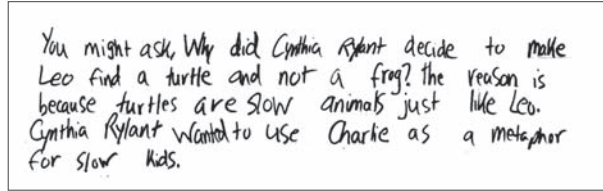 You might ask, Why did Cynthia Rylant decide to make
Leo find a turtle and not a frog? the reason is
because turtles are slow animals just like Leo.
Cynthia Rylant wanted to use Charlie as a metaphor
for slow kids.